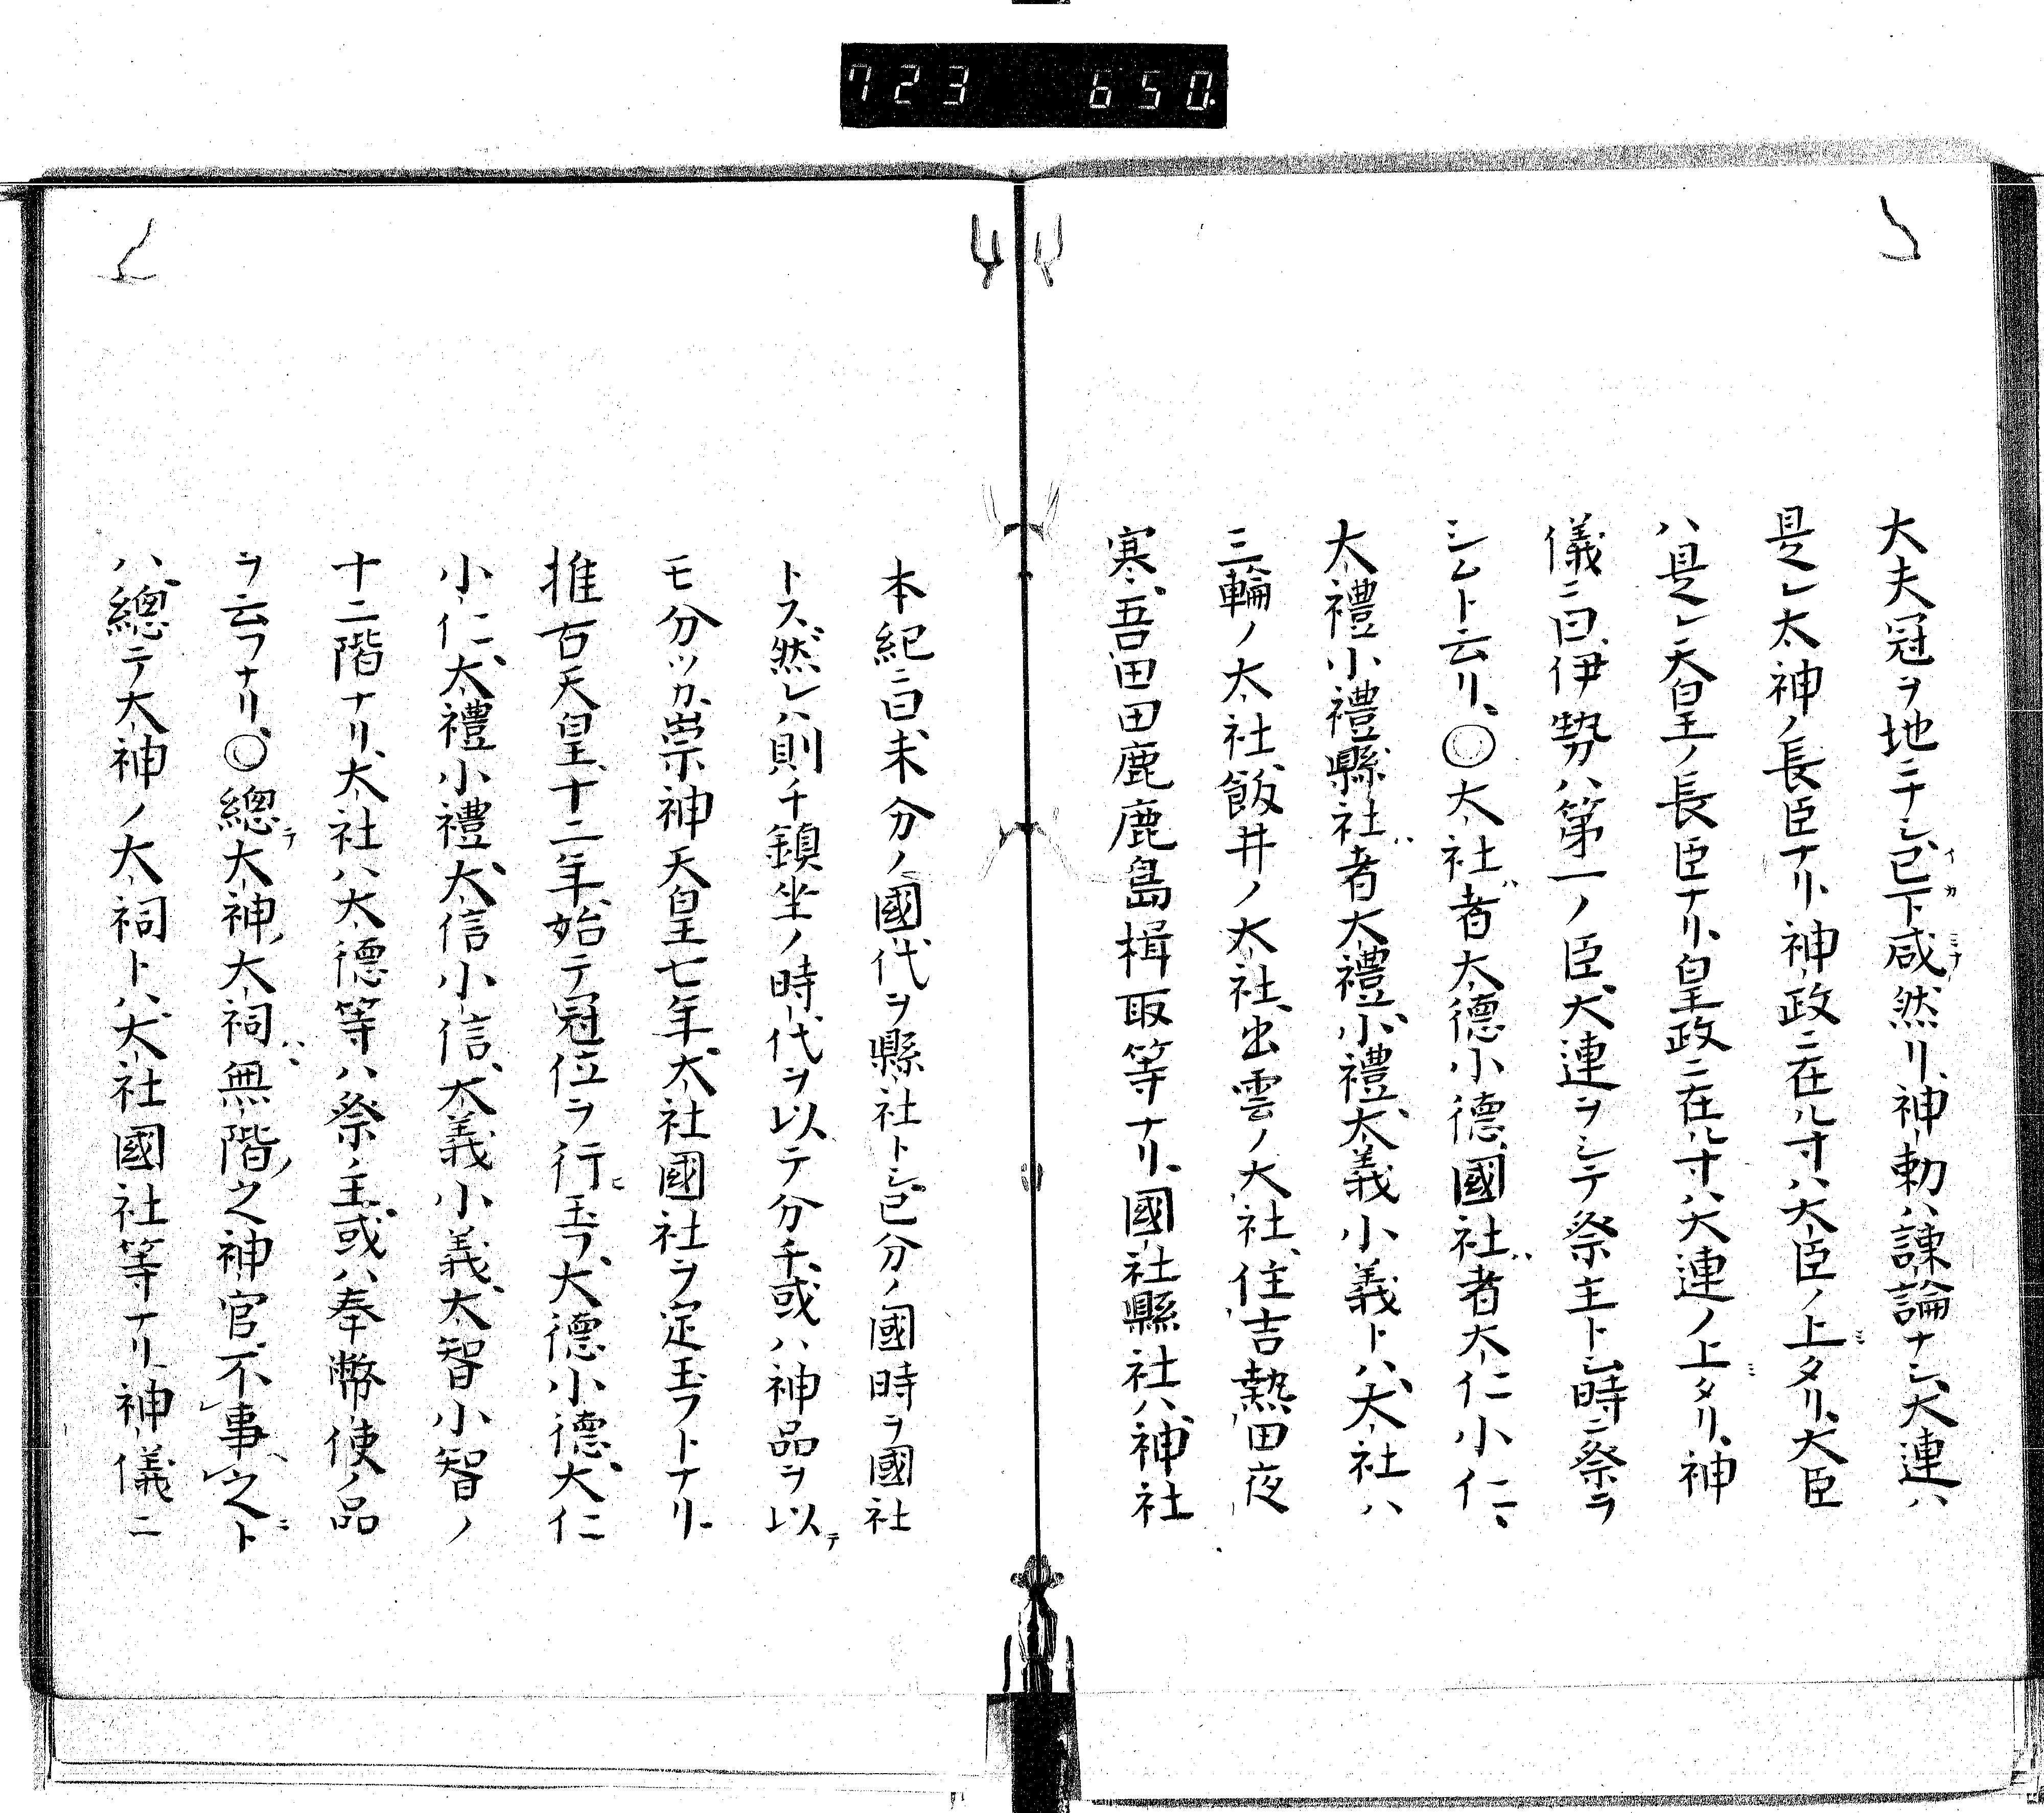 723 650.
大夫冠ヲ地ニナシ已下咸然リ、神勅ハ諌論ナシ、大連ハ
是レ太神ノ長臣ナリ、神政ニ在ル寸ハ大臣ノ上タリ、大臣
ハ是レ天皇ノ長臣ナリ、皇政ニ在ル寸ハ大連ノ上タリ、神
儀ニ曰、伊勢ハ第一ノ臣、大連ヲシテ祭主トシ時ニ祭ラ
シムト云リ、○大社者大德小德、國社者大仁小仁、
大禮小禮、縣社者大禮小禮、大義小義トハ、大社ハ
三輪ノ大社、飯井ノ大社、出雲ノ大社、住吉熱田夜
寒、吾田田鹿鹿島楫取等ナリ、國社縣社ハ神社
本紀ニ曰、未分ノ國代ヲ縣社トシ、已分ノ國時ヲ國社
トス、然レハ則チ鎮坐ノ時代ヲ以テ分チ、或ハ神品ヲ以テ
モ分ツカ、崇神天皇七年、大社國社ヲ定玉フトナリ、
推古天皇、十二年、始テ冠位ヲ行ヒ玉フ、大德小德、大仁
小仁、大禮小禮、大信小信、大義小義、大智小智ノ
十二階ナリ、大社ハ大德等ハ祭ノ主、或ハ奉幣使ノ品
ヲ云フナリ、○總テ大神ノ大祠ハ無階ノ之神官、不事之ト
ハ、總テ大神ノ大祠トハ、大社國社等ナリ、神儀ニ